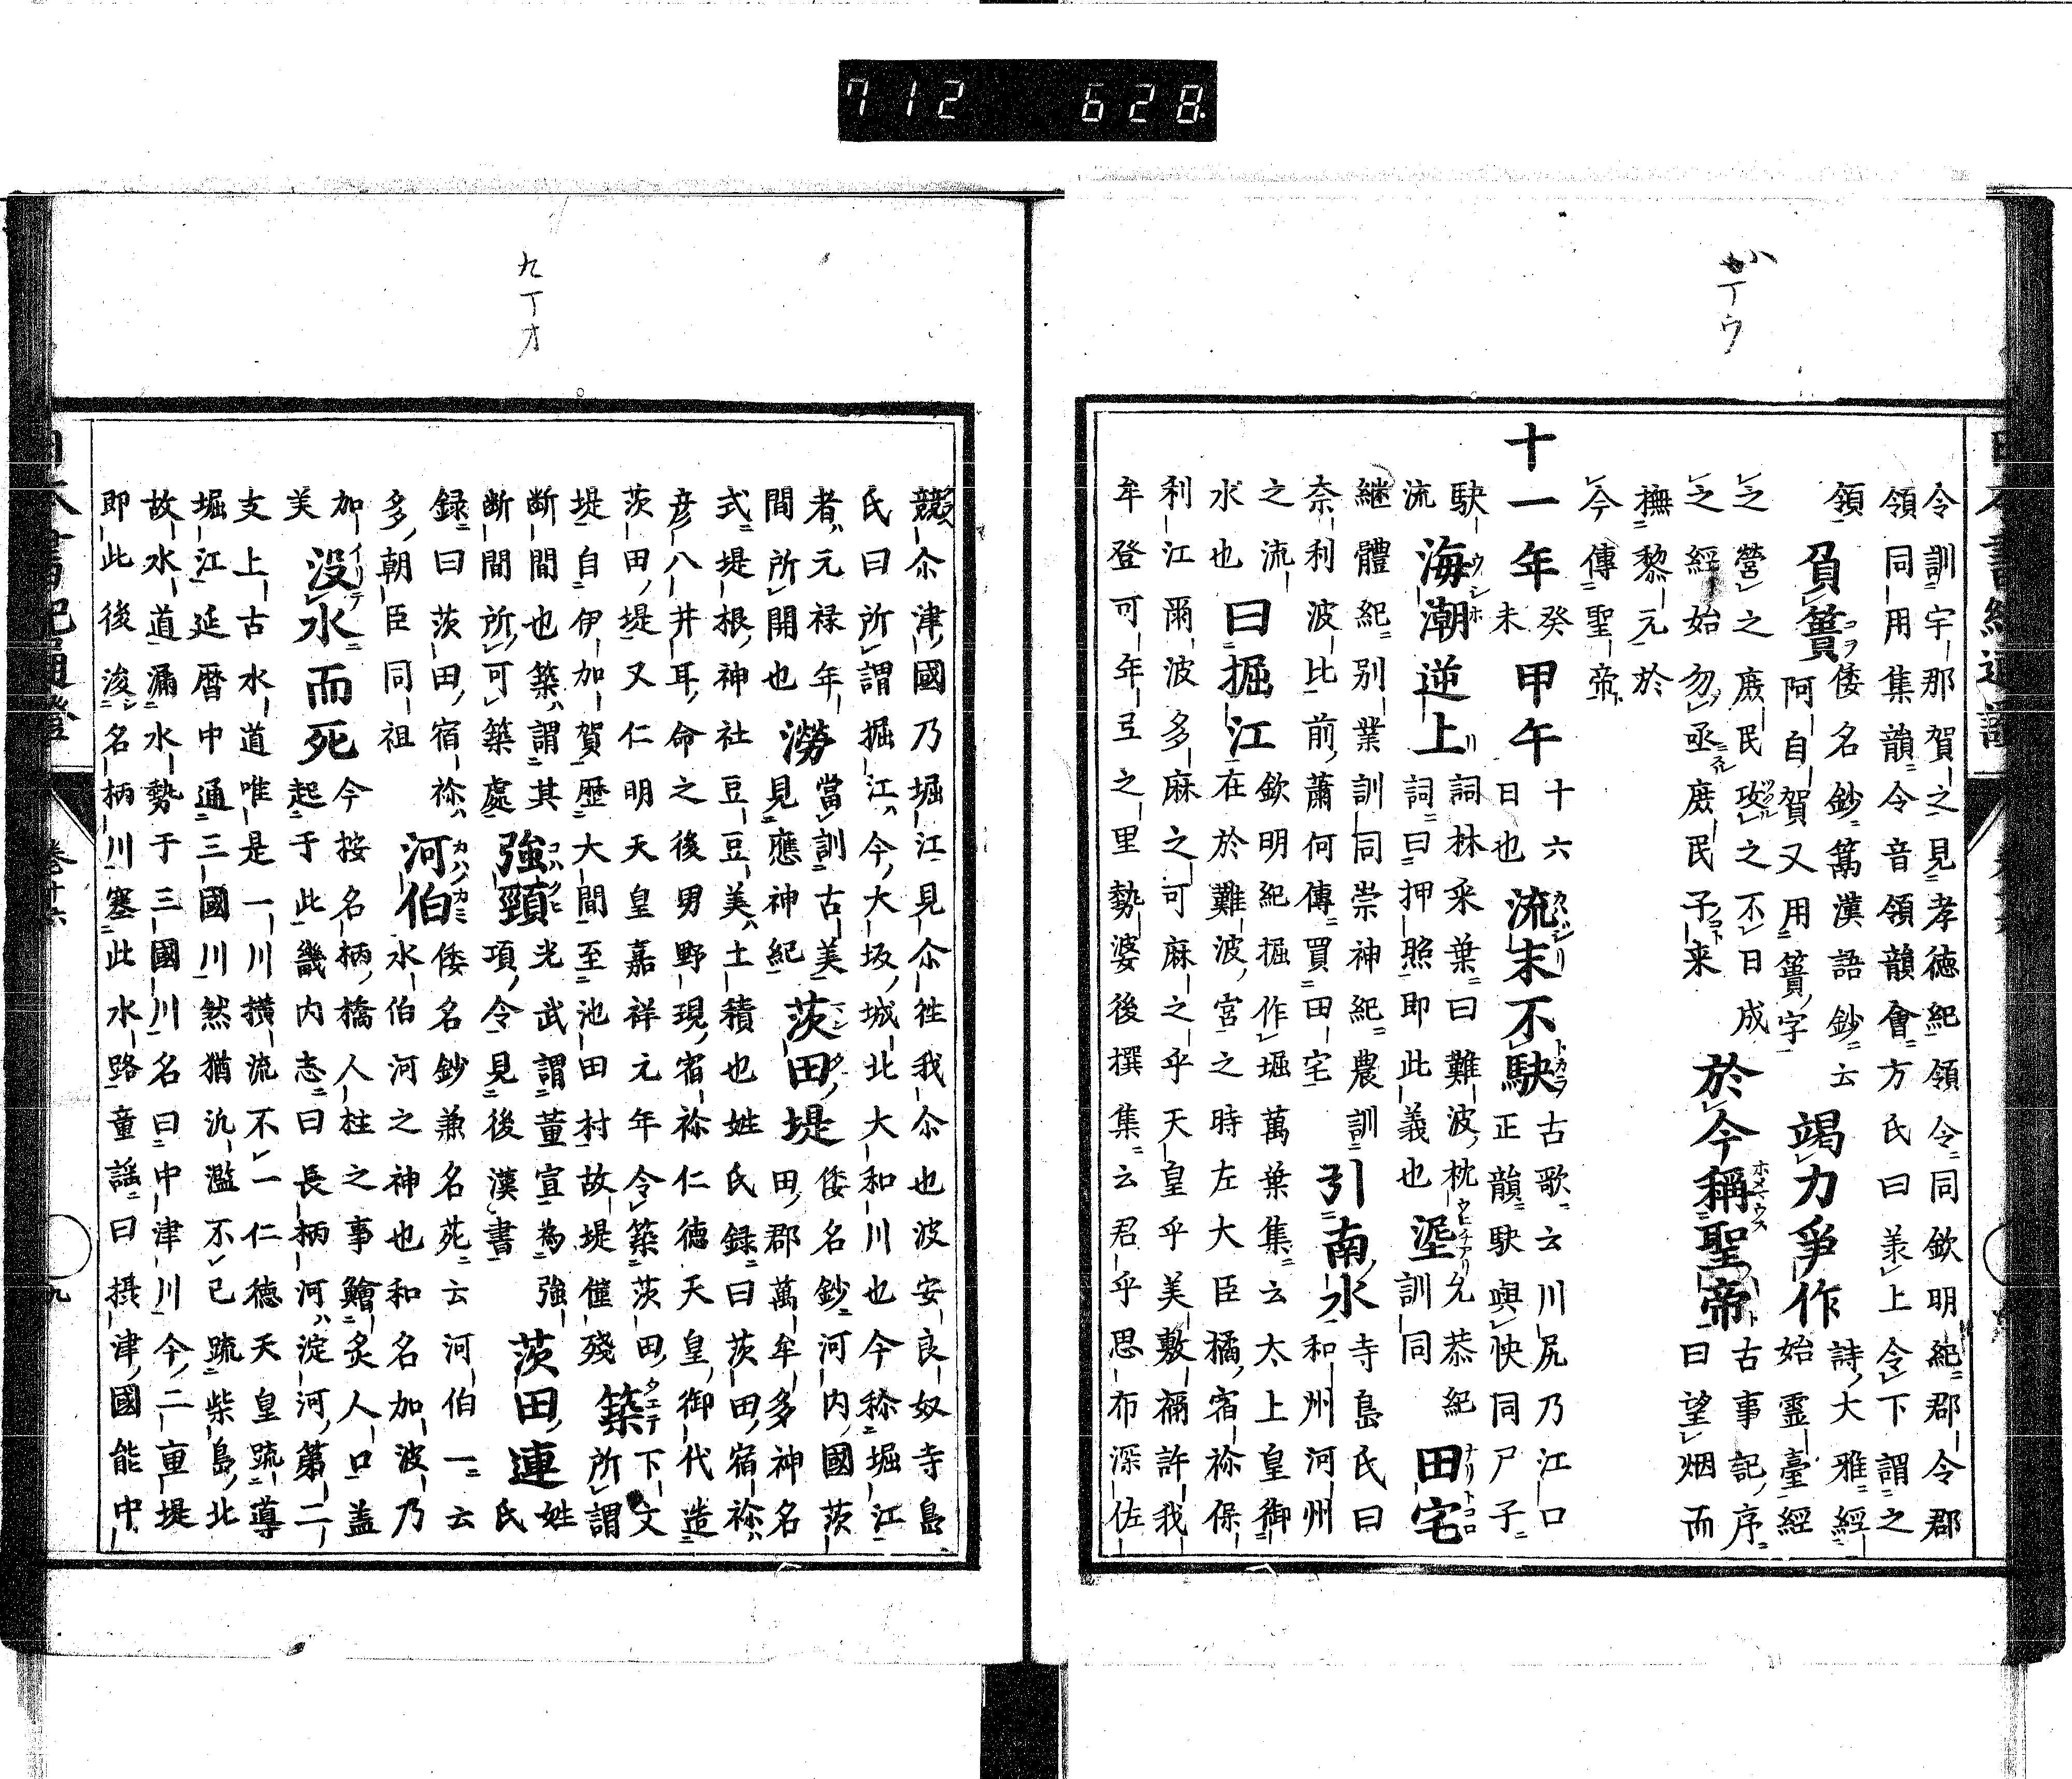 712 628.
八丁ウ
令訓宇那賀之見孝徳紀領令同欽明紀郡令郡
領同用集韻令音領韻會方氏曰羕上令下謂之
領負簣倭名鈔篤漢語鈔云竭力爭作詩大雅經
阿自賀又用簣字始靈臺經
之營之庶民攻之不日成於今稱聖帝古事記序
之經始勿亟庶民子来曰望烟而
撫黎元於
今傳聖帝
十一年癸未甲午十六日也流末不駃古歌云川尻乃江口
正韻駃與快同尸子
駃流海潮逆上詞林采葉曰難波枕
詞曰押照即此義也逕訓同允恭紀田宅
継體紀別業訓同崇神紀農訓引南水寺島氏曰
奈利波比前蕭何傳買田宅和州河州
之流曰掘江欽明紀掘作堀萬葉集云太上皇御
水也在於難波宮之時左大臣橘宿祢保
利江爾波多麻之可麻之乎天皇乎美敷禰許我
牟登可年弖之里勢婆後撰集云君乎思布深佐
九丁オ
競尒津國乃堀江見尒徃我尒也波安良奴寺島
氏曰所謂掘江今大坂城北大和川也今稱堀江
者元禄年間所開也澇當訓古美見應神紀茨田堤倭名鈔河内國茨
田郡萬牟多神名
式堤根神社豆豆美土積也姓氏録曰茨田宿祢
彦八井耳命之後男野現宿祢仁徳天皇御代造
茨田堤又仁明天皇嘉祥元年令築茨田下文
堤自伊加賀歴大間至池田村故堤僅殘築所謂
断間也築謂其強頸光武謂董宣為強項令見後漢書茨田連姓氏
断間所可築處
録曰茨田宿祢
多朝臣同祖河伯倭名鈔兼名苑云河伯一云水伯河之神也和名加波乃
加美没水而死今按名柄橋人柱之事鱠炙人口盖
起于此畿内志曰長柄河淀河第二
支上古水道唯是一川横流不一仁徳天皇疏導
堀江延暦中通三國川然猶氾濫不已疏柴島北
故水道漏水勢于三國川名曰中津川今二重堤
即此後浚名柄川塞此水路童謡曰摂津國能中
九